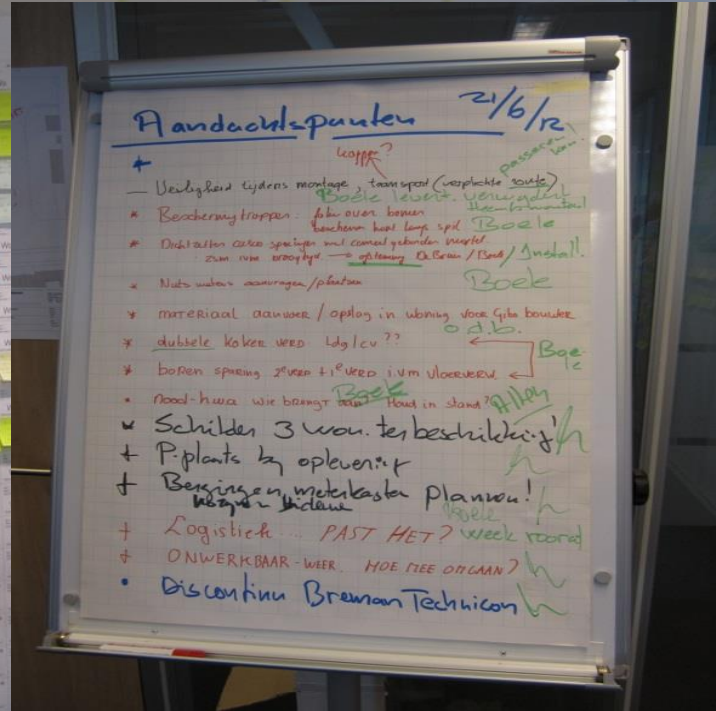 Aandachtspunten 21/6/12
kapper?
— Veiligheid tijdens montage, transport (verplichte route)
Boele levert. verwijdert
* Bescherming trappen: folie over bomen Boele
bescherm hout langs spil
* Dichtzetten casco sparingen met cement gebonden mortel
zsm ivm → oplossing De Bruin / Boele / Install.
* Nuts meters aanvragen / plaatsen Boele
* materiaal aanvoer / opslag in woning voor Gibo bouwer
o.d.b.
* dubbele koker verd. Ldg/cv ??
Boele
* boren sparing 2e verd + 1e verd i.v.m vloerverw.
Boele
• nood-hwa wie brengt aan? Houd in stand? Allen
* Schilder 3 won. ter beschikking!
+ P. plants bij oplevering
+ Bergingen, meterkasten plannen!
Boele
+ Logistiek... PAST HET? week rooral
+ ONWERKBAAR-WEER. HOE MEE OMGAAN?
• Discontinu Breman Technicon